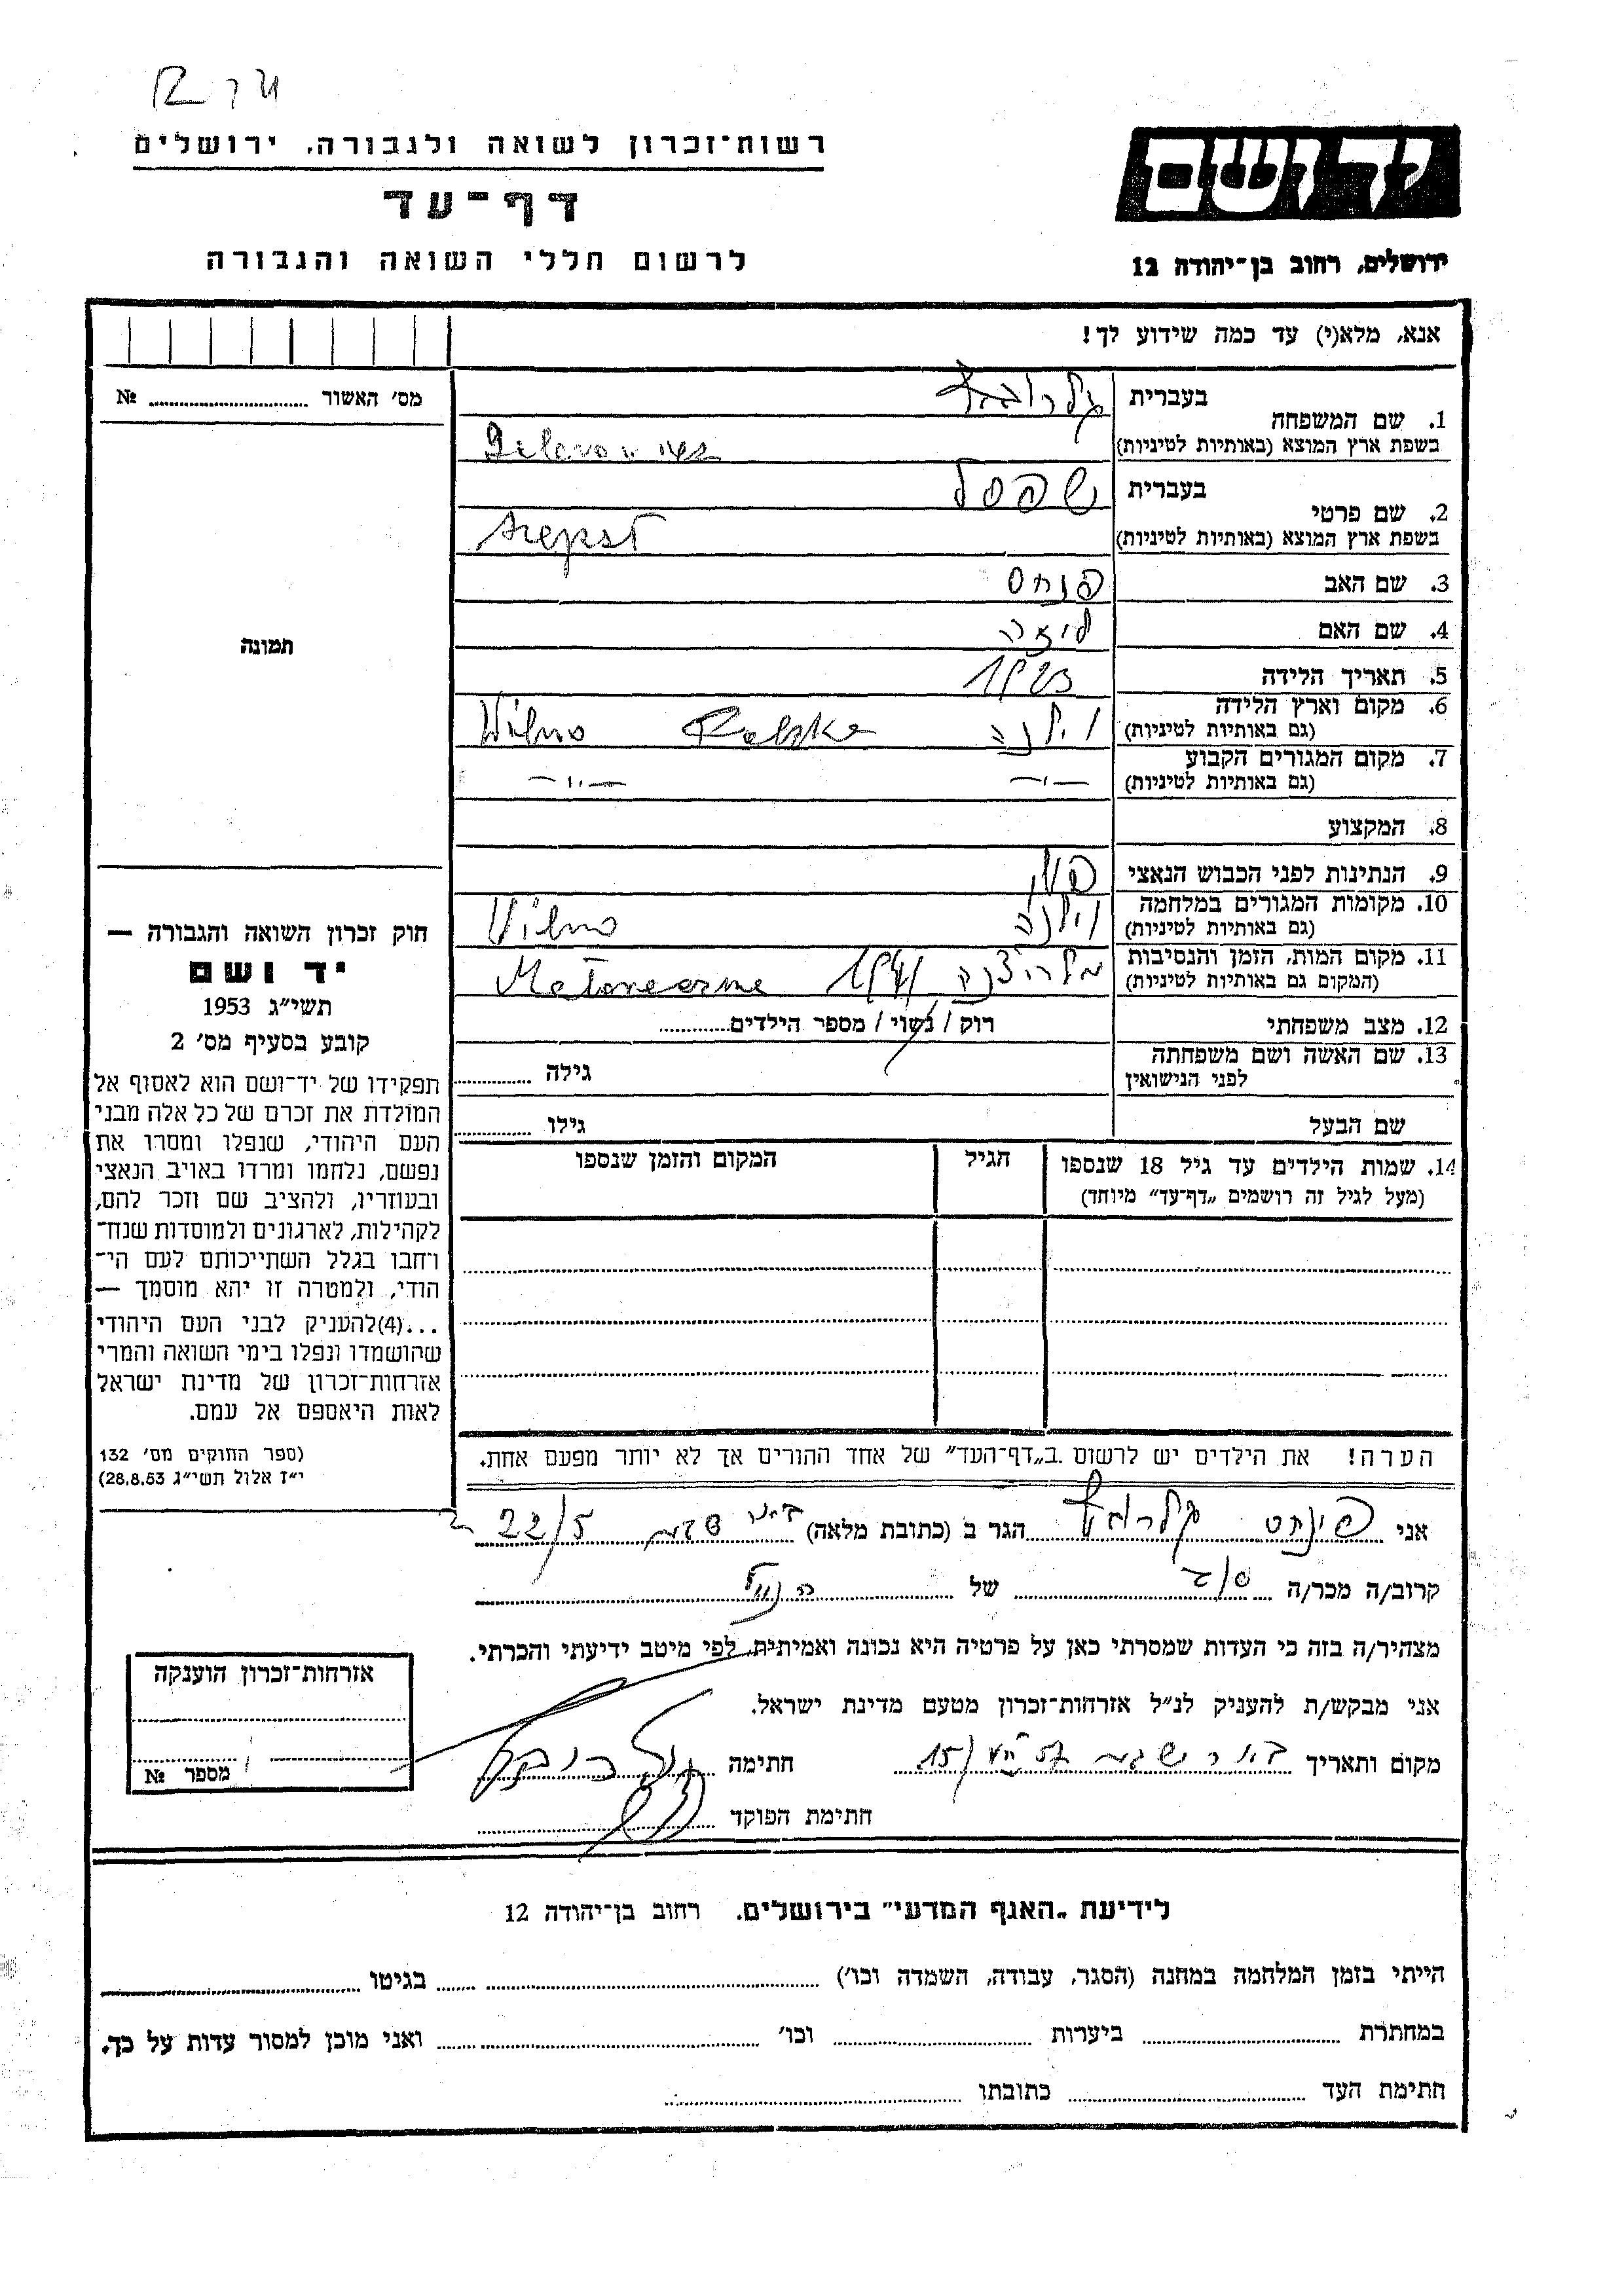 רשות־זכרון לשואה ולגבורה, ירושלים
דף־עד
לרשום חללי השואה והגבורה
יד ושם
ירושלים, רחוב בן־יהודה 12
אנא, מלא(י) עד כמה שידוע לך!
מס׳ האשור № 
תמונה
1. שם המשפחה
בעברית
בשפת ארץ המוצא (באותיות לטיניות)
2. שם פרטי
בעברית שפסל
בשפת ארץ המוצא (באותיות לטיניות) Szepsl
3. שם האב פנחס
4. שם האם ליזה
5. תאריך הלידה 1923
6. מקום וארץ הלידה
(גם באותיות לטיניות) וילנה Wilno
7. מקום המגורים הקבוע
(גם באותיות לטיניות) —״— —״—
8. המקצוע
9. הנתינות לפני הכבוש הנאצי
10. מקומות המגורים במלחמה
(גם באותיות לטיניות) וילנה Vilno
11. מקום המות, הזמן והנסיבות
(המקום גם באותיות לטיניות) 1941
12. מצב משפחתי רוק / נשוי / מספר הילדים
13. שם האשה ושם משפחתה
לפני הנישואין גילה
שם הבעל גילו
14. שמות הילדים עד גיל 18 שנספו הגיל המקום והזמן שנספו
(מעל לגיל זה רושמים „דף־עד״ מיוחד)
הערה! את הילדים יש לרשום ב„דף־העד״ של אחד ההורים אך לא יותר מפעם אחת.
חוק זכרון השואה והגבורה —
יד ושם
תשי״ג 1953
קובע בסעיף מס׳ 2
תפקידו של יד־ושם הוא לאסוף אל
המולדת את זכרם של כל אלה מבני
העם היהודי, שנפלו ומסרו את
נפשם, נלחמו ומרדו באויב הנאצי
ובעוזריו, ולהציב שם וזכר להם,
לקהילות, לארגונים ולמוסדות שנח־
רחבו בגלל השתייכותם לעם הי־
הודי, ולמטרה זו יהא מוסמך —
...(4)להעניק לבני העם היהודי
שהושמדו ונפלו בימי השואה והמרי
אזרחות־זכרון של מדינת ישראל
לאות היאספם אל עמם.
(ספר החוקים מס׳ 132
י״ז אלול תשי״ג 28.8.53)
אני הגר ב (כתובת מלאה) באר שבע 22/5
קרוב/ה מכר/ה של הנ״ל
מצהיר/ה בזה כי העדות שמסרתי כאן על פרטיה היא נכונה ואמיתית, לפי מיטב ידיעתי והכרתי.
אני מבקש/ת להעניק לנ״ל אזרחות־זכרון מטעם מדינת ישראל.
מקום ותאריך באר שבע חתימה
חתימת הפוקד
אזרחות־זכרון הוענקה
מספר №
לידיעת „האגף המדעי״ בירושלים, רחוב בן־יהודה 12
הייתי בזמן המלחמה במחנה (הסגר, עבודה, השמדה וכו׳) בגיטו
במחתרת ביערות וכו׳ ואני מוכן למסור עדות על כך.
חתימת העד כתובתו